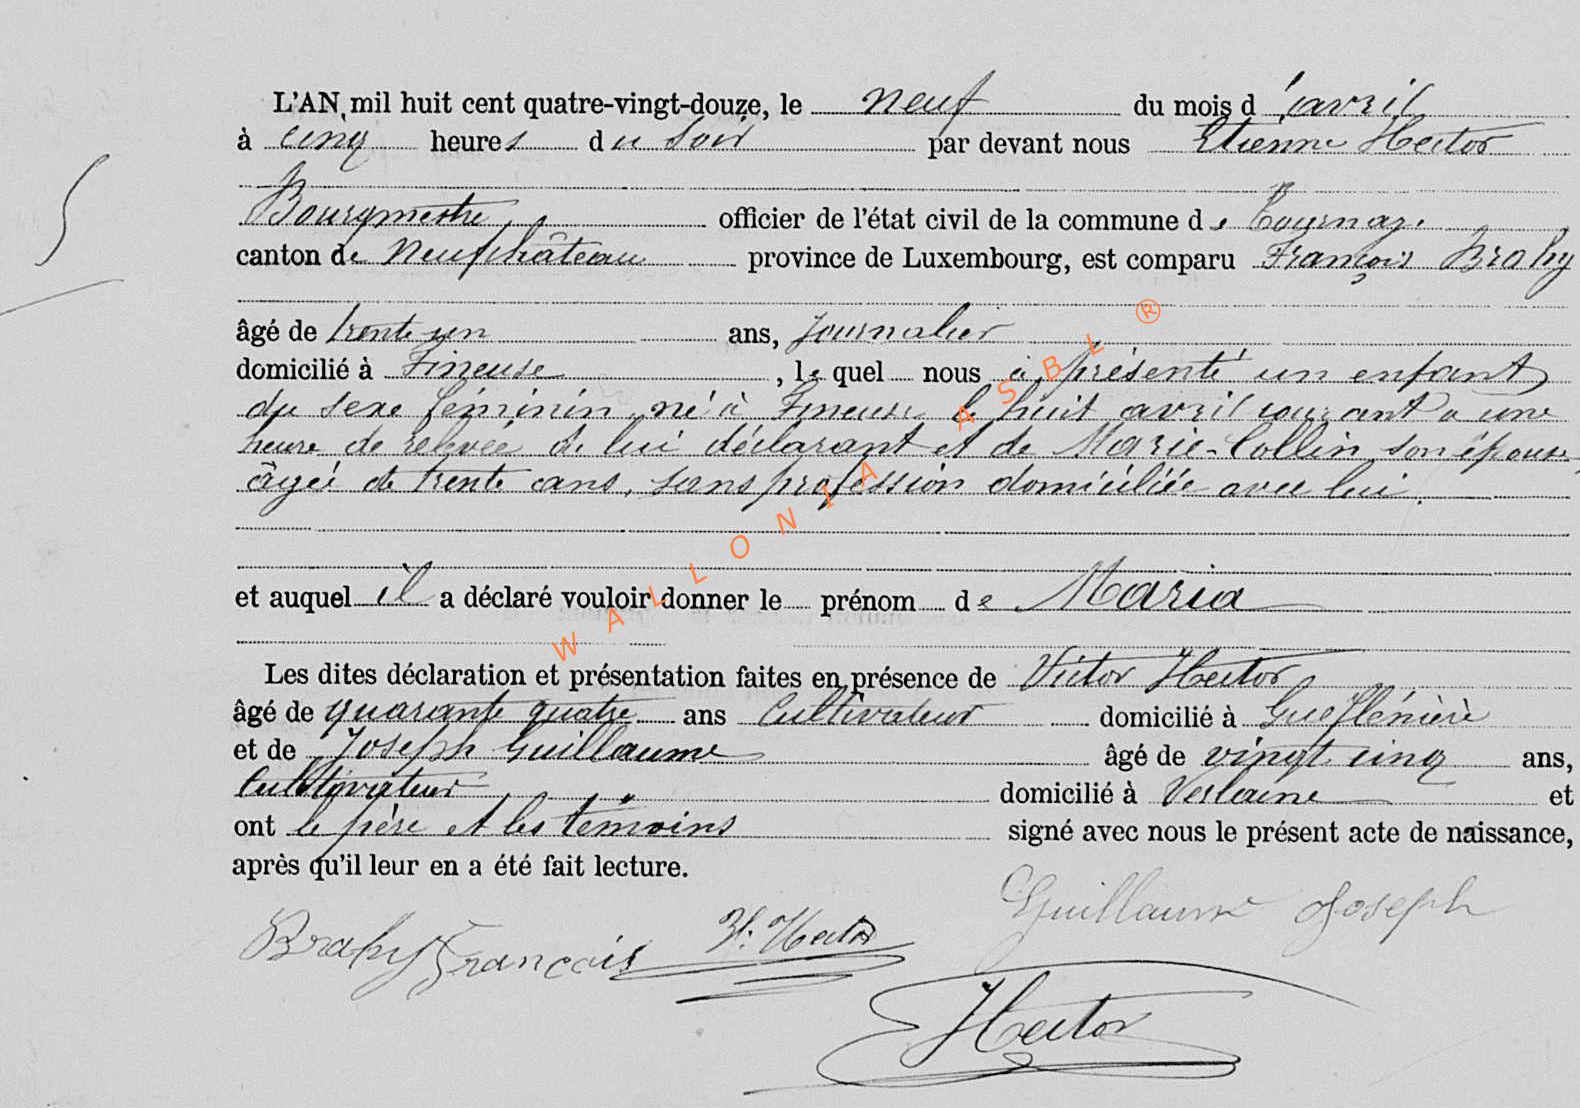 L'AN mil huit cent quatre-vingt-douze, le neuf du mois d'avril
à cinq heures du soir par devant nous Etienne Hector
Bourgmestre officier de l'état civil de la commune de Tournay
canton de Neufchâteau province de Luxembourg, est comparu François Brahy
âgé de trente un ans, journalier
domicilié à Fineuse, lequel nous a présenté un enfant
du sexe féminin, né à Fineuse le huit avril courant à une
heure de relevée de lui déclarant et de Marie-Collin son épouse,
âgée de trente ans, sans profession domiciliée avec lui.
et auquel il a déclaré vouloir donner le prénom de Maria
Les dites déclaration et présentation faites en présence de Victor Hector
âgé de quarante quatre ans Cultivateur domicilié à
et de Joseph Guillaume âgé de vingt cinq ans,
Cultivateur domicilié à Verlaine et
ont le père et les témoins signé avec nous le présent acte de naissance,
après qu'il leur en a été fait lecture.
Guillaume Joseph
Brahy François V. Hector
Hector
WALLONIA ASBL ®
5